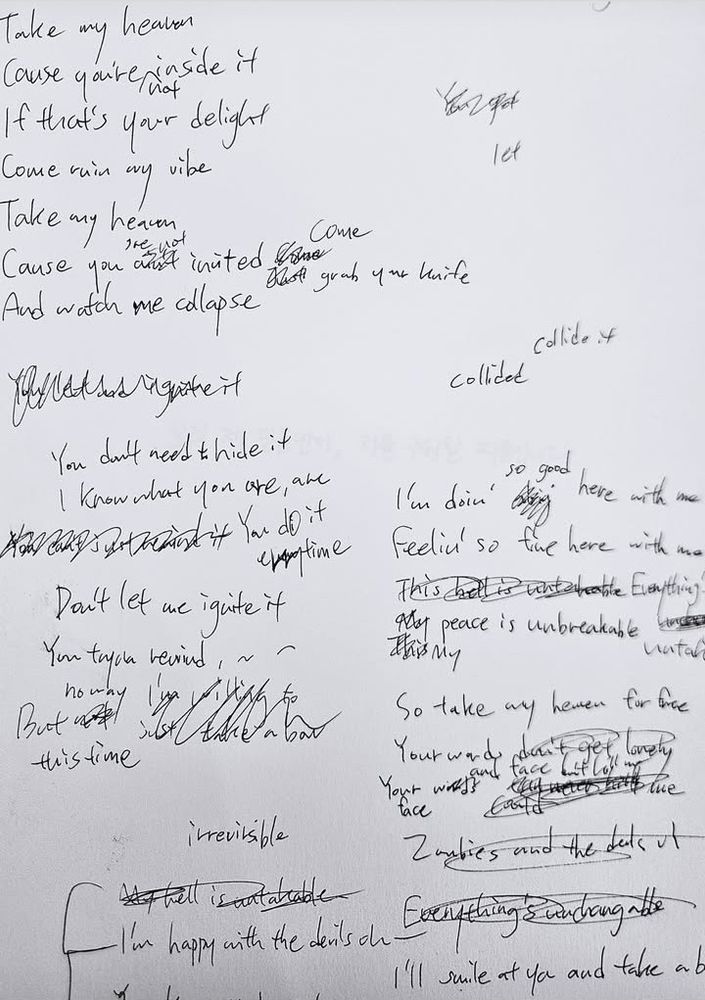 Take my heaven
Cause you're not inside it
If that's your delight
Come ruin my vibe
Take my heaven
Cause you're not invited Come
grab your knife
And watch me collapse
ignite it
You don't need to hide it
I know what you are, are
You do it
everytime
Don't let me ignite it
You tryna rewind, ~
But no way I'm willing to
just take a bow
this time
irrevirsible
My hell is untakeable
I'm happy with the devils oh
let
collide it
collided
I'm doin' so good here with me
Feelin' so fine here with me
This hell is untakeable Everything's
My peace is unbreakable
This My
So take my heaven for free
Your words don't get lonely
and face
Your words
face
Zombies and the deads
Everything's unchangable
I'll smile at you and take a b